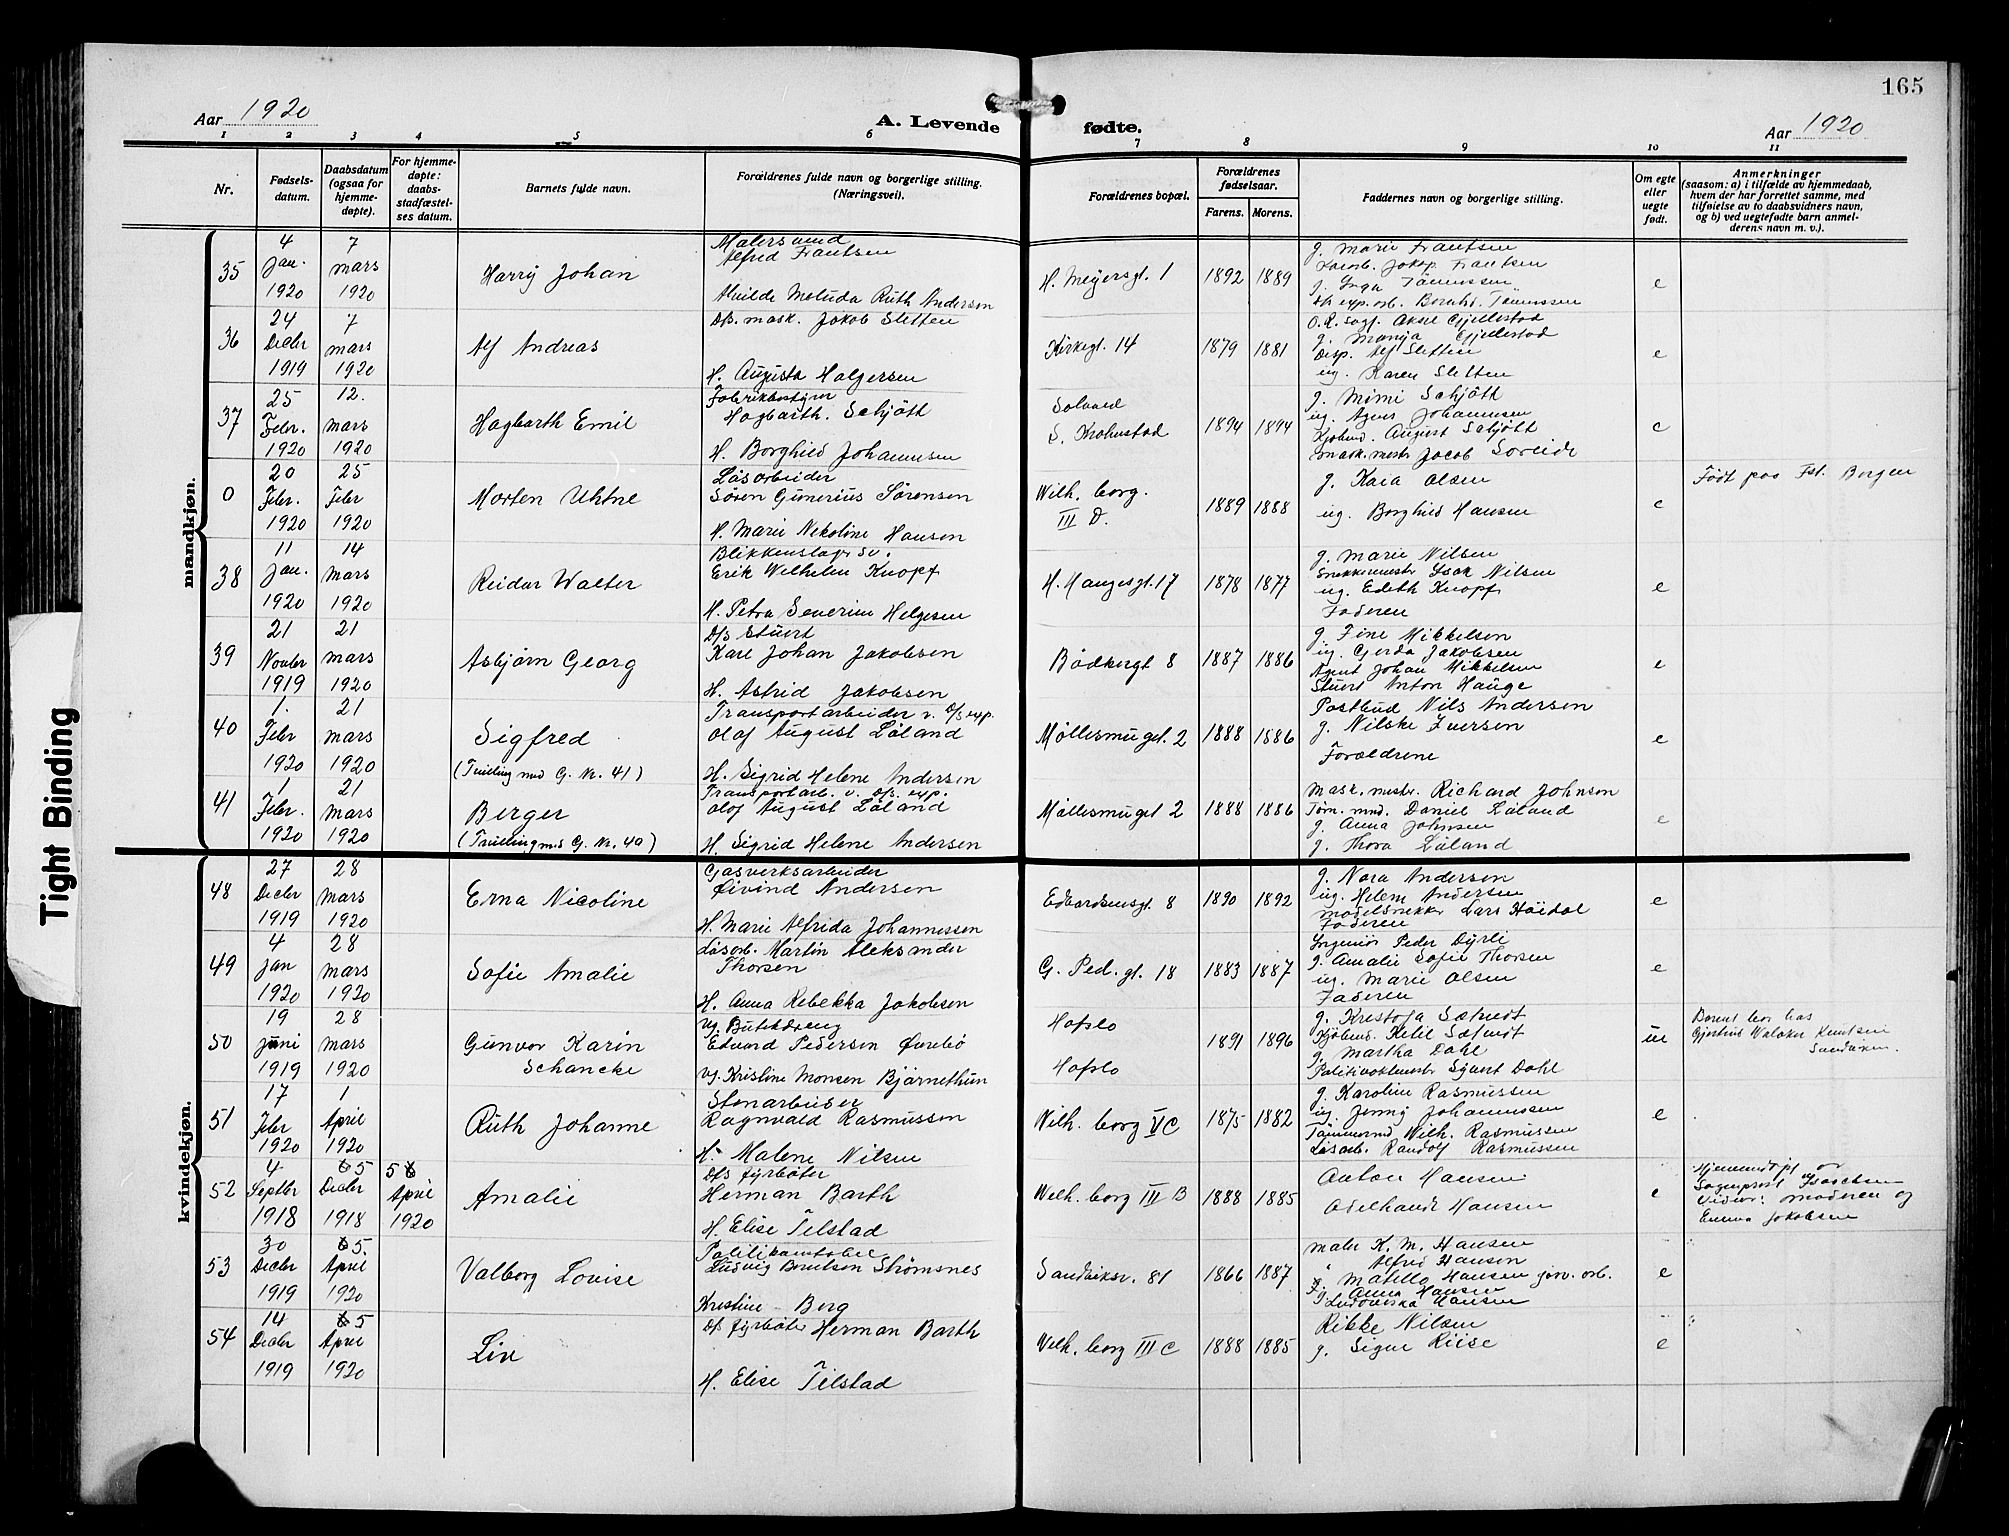 165
Aar 1920
A. Levende fødte.
Aar 1920
1 2 3 4 5 6 7 8 9 10 11
Nr.
Fødsels-
datum.
Daabsdatum
(ogsaa for
hjemme-
døpte).
For hjemme-
døpte:
daabs-
stadfæstel-
ses datum.
Barnets fulde navn.
Forældrenes fulde navn og borgerlige stilling.
(Næringsvei).
Forældrenes bopæl.
Forældrenes
fødselsaar.
Farens. Morens.
Faddernes navn og borgerlige stilling.
Om egte
eller
uegte
født.
Anmerkninger
(saasom: a) i tilfælde av hjemmedaab,
hvem der har forrettet samme, med
tilføielse av to daabsvidners navn,
og b) ved uegtefødte barn anmel-
derens navn m. v.).
mandkjøn.
35
4
Jan.
1920
7
mars
1920
Harry Johan
Malersvend
Alfred Frantsen
Ruth Andersen
H. Meyersgt. 1
1892 1889
g. Marie Frantsen
Frantsen
g. Inga
e
36
24
Decbr
1919
7
mars
1920
Alf Andreas
D/s. mask. Jakob Sletten
H. Augusta Holgersen
Kirkegt. 14
1879 1881
O.R. Sagf. Aksel Gjellestad
g. Manja Gjellestad
Disp. Alf Sletten
ug. Karen Sletten
e
37
25
Febr.
1920
12.
mars
1920
Hagbarth Emil
Fabrikbestyrer
Hagbarth. Schjøtt
H. Borghild Johannesen
1894 1894
g. Mimi Schjøtt
ug. Agnes Johannesen
Kjøbmd. August Schjøtt
mask. mestr Jacob
e
0
20
Febr.
1920
25
Febr
1920
Morten Uhtne
Løsarbeider
Søren Gunerius Sørensen
H. Marie Nekoline Hansen
Wilh. borg.
III D.
1889 1888
g. Kaia Olsen
ug. Borghild Hansen
e
Født paa Fst. Bergen
38
11
Jan.
1920
14
Mars
1920
Reidar Walter
Blikkenslager sv.
Erik Wilhelm Knopf
H. Petra Severine Helgesen
H. Haugesgt. 17
1878 1877
g. Marie Nilsen
Snekkermester Isak Nilsen
ug. Edith Knopf
Faderen
e
39
21
Novbr
1919
21
mars
1920
Asbjørn Georg
D/s Stuert
Karl Johan Jakobsen
H. Astrid Jakobsen
Bødkergt 8
1887 1886
g. Fine Mikkelsen
ug. Gerda Jakobsen
Agent Johan Mikkelsen
Stuert Anton Hauge
e
40
1.
Febr
1920
21
mars
1920
Sigfred
(Tvilling med G. Nr. 41)
Transportarbeider v. D/s exp.
Olaf August Løland
H. Sigrid Helene Andersen
Møllesmuget. 2
1888 1886
Postbud Nils Andersen
g. Nilske Iversen
Forældrene
e
41
1
Febr.
1920
21
Mars
1920
Berger
(Tvilling med G. Nr. 40)
Transportarb. v. D/s. exp.
Olaf August Løland
H. Sigrid Helene Andersen
Møllesmuget 2
1888 1886
Mask. mestr. Richard Johnsen
Tøm. mnd. Daniel Løland
g. Anna Johnsen
g. Thora Løland
e
kvindekjøn.
48
27
Decbr
1919
28
Mars
1920
Erna Nicoline
Gasverksarbeider
Øivind Andersen
H. Marie Alfrida Johannessen
Edvardsensgt. 8
1890 1892
g. Nora Andersen
ug. Helene Andersen
modelsnekker Lars Høidal
Faderen
e
49
4
Jan
1920
28
mars
1920
Sofie Amalie
Løsarb. Martin Aleksander
Thorsen
H. Anna Rebekka Jakobsen
G. Ped. gt. 18
1883 1887
Ingeniør Peder Dyrli
g. Amalie Sofie Thorsen
ug. Marie Olsen
Faderen
e
50
19
Juni
1919
28
Mars
1920
Gunvor Karin
Schancke
ug. Butikdreng
Edvard Pedersen Øvrebø
ug. Kristine Monsen Bjørnethun
Hafslo
Hafslo
1891 1896
g. Martha Dahl
Sjurt Dahl
ue
Barnet bor hos
Gjertrud Walaker Knutsen
Sandviken.
51
17
Febr
1920
1
April
1920
Ruth Johanne
Stenarbeider
Ragnvald Rasmussen
H. Malene Nilsen
Wilh. borg V C
1875 1882
g. Karoline Rasmussen
ug. Jenny Johannessen
Tømmermd Wilh. Rasmussen
Løsarb. Randolf Rasmussen
e
52
4
Septbr
1918
5
Decbr
1918
5
April
1920
Amalie
D/s fyrbøter
Herman Barth
H. Elise Tilstad
Wilh. borg III B
1888 1885
Anton Hansen
Adelhande Hansen
e
Hjemmedøpt av
Sogneprest Isachsen
Vidner: moderen og
Emma Jakobsen
53
30
Decbr
1919
5.
April
1920
Valborg Lovise
Politikonstabel
Ludvig Strømsnes
Kristine Berg
Sandviksv. 81
1866 1887
Maler K. M. Hansen
" Alfred Hansen
Hansen
Anna Hansen
Hansen
e
54
14
Decbr
1919
5
April
1920
Liv
D/s fyrbøter Herman Barth
H. Elise Tilstad
Wilh. borg III C
1888 1885
Rikke Nilsen
g. Signe Riise
e
Tight Binding